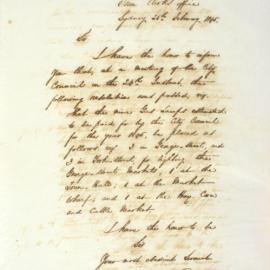 Town Clerk's Office
Sydney 26th February 1845.
Sir
I have the honor to inform
you that, at a meeting of the City
Council on the 24th Instant, the
following resolution was passed, viz
That the nine Gas Lamps
to be paid for by the City Council
for the year 1845, be placed as
follows, viz 3 in George Street, and
3 in York Street, for lighting the
George Street Markets, 1 at the
Town Hall, 1 at the Market
Wharf, and 1 at the Hay, Corn
and Cattle Market.
I have the honor to be
Sir
Your most obedient Servant